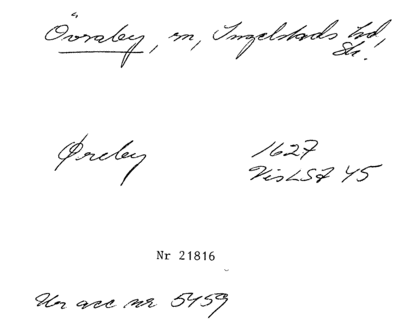 Övraby, sn, Ingelstads hd,
Sk.
Øreby 1627
VisLSt 45
Nr 21816
Ur acc nr 5459